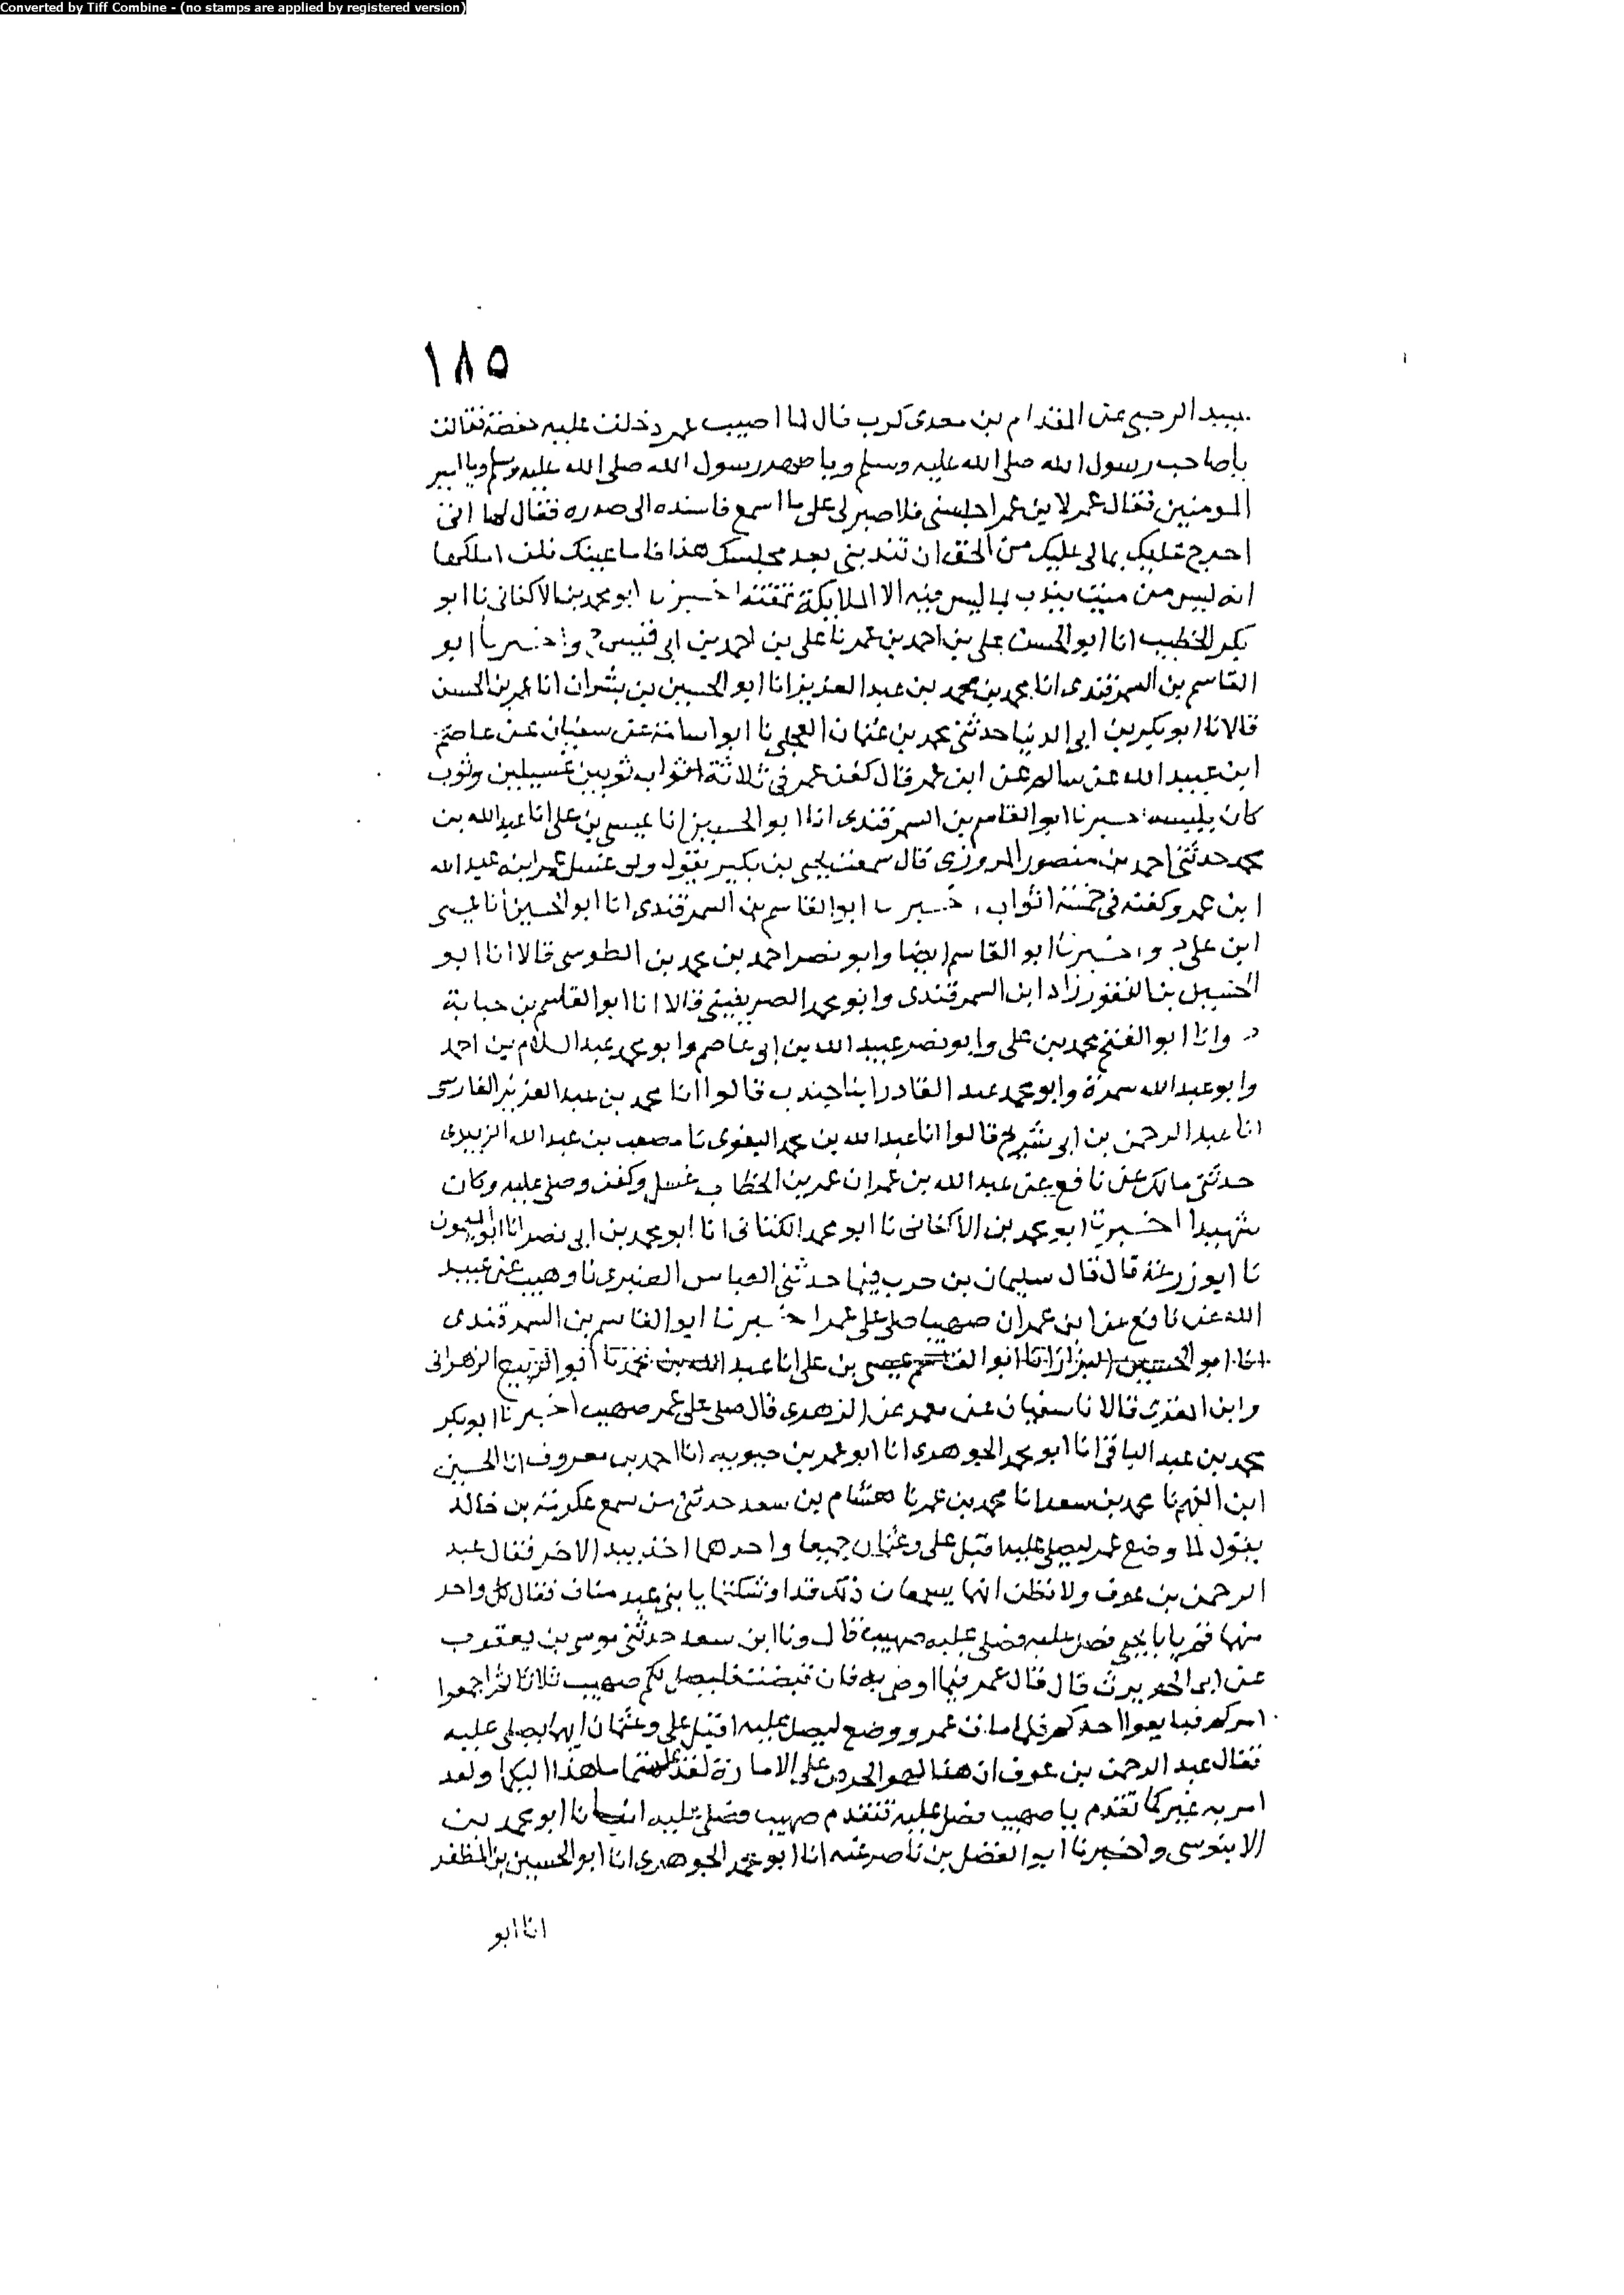 Converted by Tiff Combine - (no stamps are applied by registered version)
١٨٥
عبيد الرحبي عن المقدام بن معدي كرب قال لما اصيب عمر دخلت عليه حفصة فقالت
يا صاحب رسول الله صلى الله عليه وسلم ويا صهر رسول الله صلى الله عليه وسلم ويا امير
المومنين فقال عمر لابن عمر اجلسني فلا صبر لي على ما اسمع فاسنده الى صدره فقال لها اني
احرج عليك بمالي عليك من الحق ان تندبيني بعد مجلسك هذا فاما عينك فلن املكها
انه ليس من ميت يندب بما ليس فيه الا الملايكة تمقته اخبرنا ابو محمد بن الاكفاني نا ابو
بكر الخطيب انا ابو الحسن علي بن احمد بن عمر نا علي بن احمد بن ابي قيس ح واخبرنا ابو
القاسم بن السمرقندي انا محمد بن محمد بن عبد العزيز انا ابو الحسين بن بشران انا عمر بن الحسن
قالا نا ابو بكر بن ابي الدنيا حدثني محمد بن عثمان العجلي نا ابو اسامة عن سفيان عن عاصم
ابن عبيد الله عن سالم عن ابن عمر قال كفن عمر في ثلاثة اثواب ثوبين غسيلين وثوب
كان يلبسه اخبرنا ابو القاسم بن السمرقندي انا ابو الحسين انا عيسى بن علي انا عبد الله بن
محمد حدثني احمد بن منصور المروزي قال سمعت يحيى بن بكير يقول ولي غسل عمر ابنه عبد الله
ابن عمر وكفنه في خمسة اثواب اخبرنا ابو القاسم بن السمرقندي انا ابو الحسين انا عيسى
ابن علي ح واخبرنا ابو القاسم ايضا وابو نصر احمد بن محمد بن الطوسي قالا انا ابو
الحسين بن النقور زاد ابن السمرقندي وابو محمد الصريفيني قالا انا ابو القاسم بن حبابة
ح وانا ابو الفتح محمد بن علي وابو نصر عبيد الله بن ابي عاصم وابو محمد عبد السلام بن احمد
وابو عبد الله سمرة وابو محمد عبد القادر ابنا جندب قالوا انا محمد بن عبد العزيز الفارسي
انا عبد الرحمن بن ابي شريح قالوا انا عبد الله بن محمد البغوي نا مصعب بن عبد الله الزبيري
حدثني مالك عن نافع عن عبد الله بن عمر ان عمر بن الخطاب غسل وكفن وصلي عليه وكان
شهيدا اخبرنا ابو محمد بن الاكفاني نا ابو محمد الكتاني انا ابو محمد بن ابي نصر انا ابو الميمون
نا ابو زرعة قال قال سليمان بن حرب فيما حدثني العباس العنبري نا وهيب عن عبيد
الله عن نافع عن ابن عمر ان صهيبا صلى على عمر اخبرنا ابو القاسم بن السمرقندي
انا ابو الحسين البزاز انا ابو القاسم عيسى بن علي انا عبد الله بن محمد نا ابو الربيع الزهراني
وابن المقرئ قالا نا سفيان عن معمر عن الزهري قال صلى على عمر صهيب اخبرنا ابو بكر
محمد بن عبد الباقي انا ابو محمد الجوهري انا ابو عمر بن حيويه انا احمد بن معروف انا الحسين
ابن الفهم نا محمد بن سعد انا محمد بن عمر نا هشام بن سعد حدثني من سمع عكرمة بن خالد
يقول لما وضع عمر ليصلى عليه اقبل علي وعثمان جميعا واحدهما اخذ بيد الاخر فقال عبد
الرحمن بن عوف ولا نظن انهما يسمعان ذلك قد اوشكتما يا بني عبد مناف فقال كل واحد
منهما قم يا ابا يحيى فصل عليه فصلى عليه صهيب قال ونا ابن سعد حدثني موسى بن يعقوب
عن ابي الحويرث قال قال عمر فيما اوصى به فان قبضت فليصل لكم صهيب ثلاثا ثم اجمعوا
امركم فبايعوا احدكم فلما مات عمر ووضع ليصلى عليه اقبل علي وعثمان ايهما يصلي عليه
فقال عبد الرحمن بن عوف ان هذا لهو الحرص على الامارة لقد علمتما ما هذا اليكما ولقد
امر به غيركما تقدم يا صهيب فصل عليه فتقدم صهيب فصلى عليه انبانا ابو محمد بن
الابنوسي واخبرنا ابو الفضل بن ناصر عنه انا ابو محمد الجوهري انا ابو الحسين بن المظفر
انا ابو